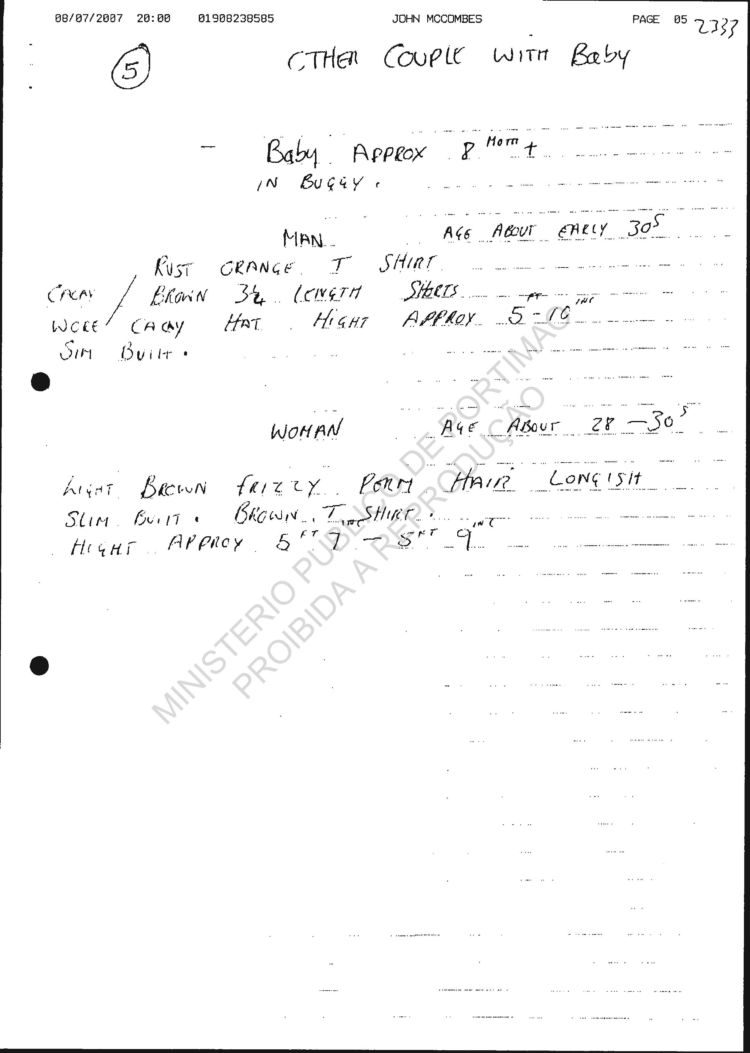 08/07/2007 20:00 01908238585 JOHN MCCOMBES PAGE 05 2333
5 OTHER COUPLE WITH Baby
- Baby APPROX 8 MOTH +
IN BUGGY.
MAN AGE ABOUT EARLY 30S
RUST ORANGE T SHIRT
CACAY / BROWN 3/4 LENGTH SHORTS
WORE CACAY HAT. HIGHT APPROX 5FT-10INC
SIM BUILT.
WOMAN AGE ABOUT 28-30S
LIGHT BROWN FRIZZY PERM HAIR LONGISH
SLIM BUILT. BROWN T SHIRT.
HIGHT APPROX 5FT 7INC - 5FT 9INC
MINISTERIO PUBLICO DE PORTIMAO
PROIBIDA A REPRODUÇÃO